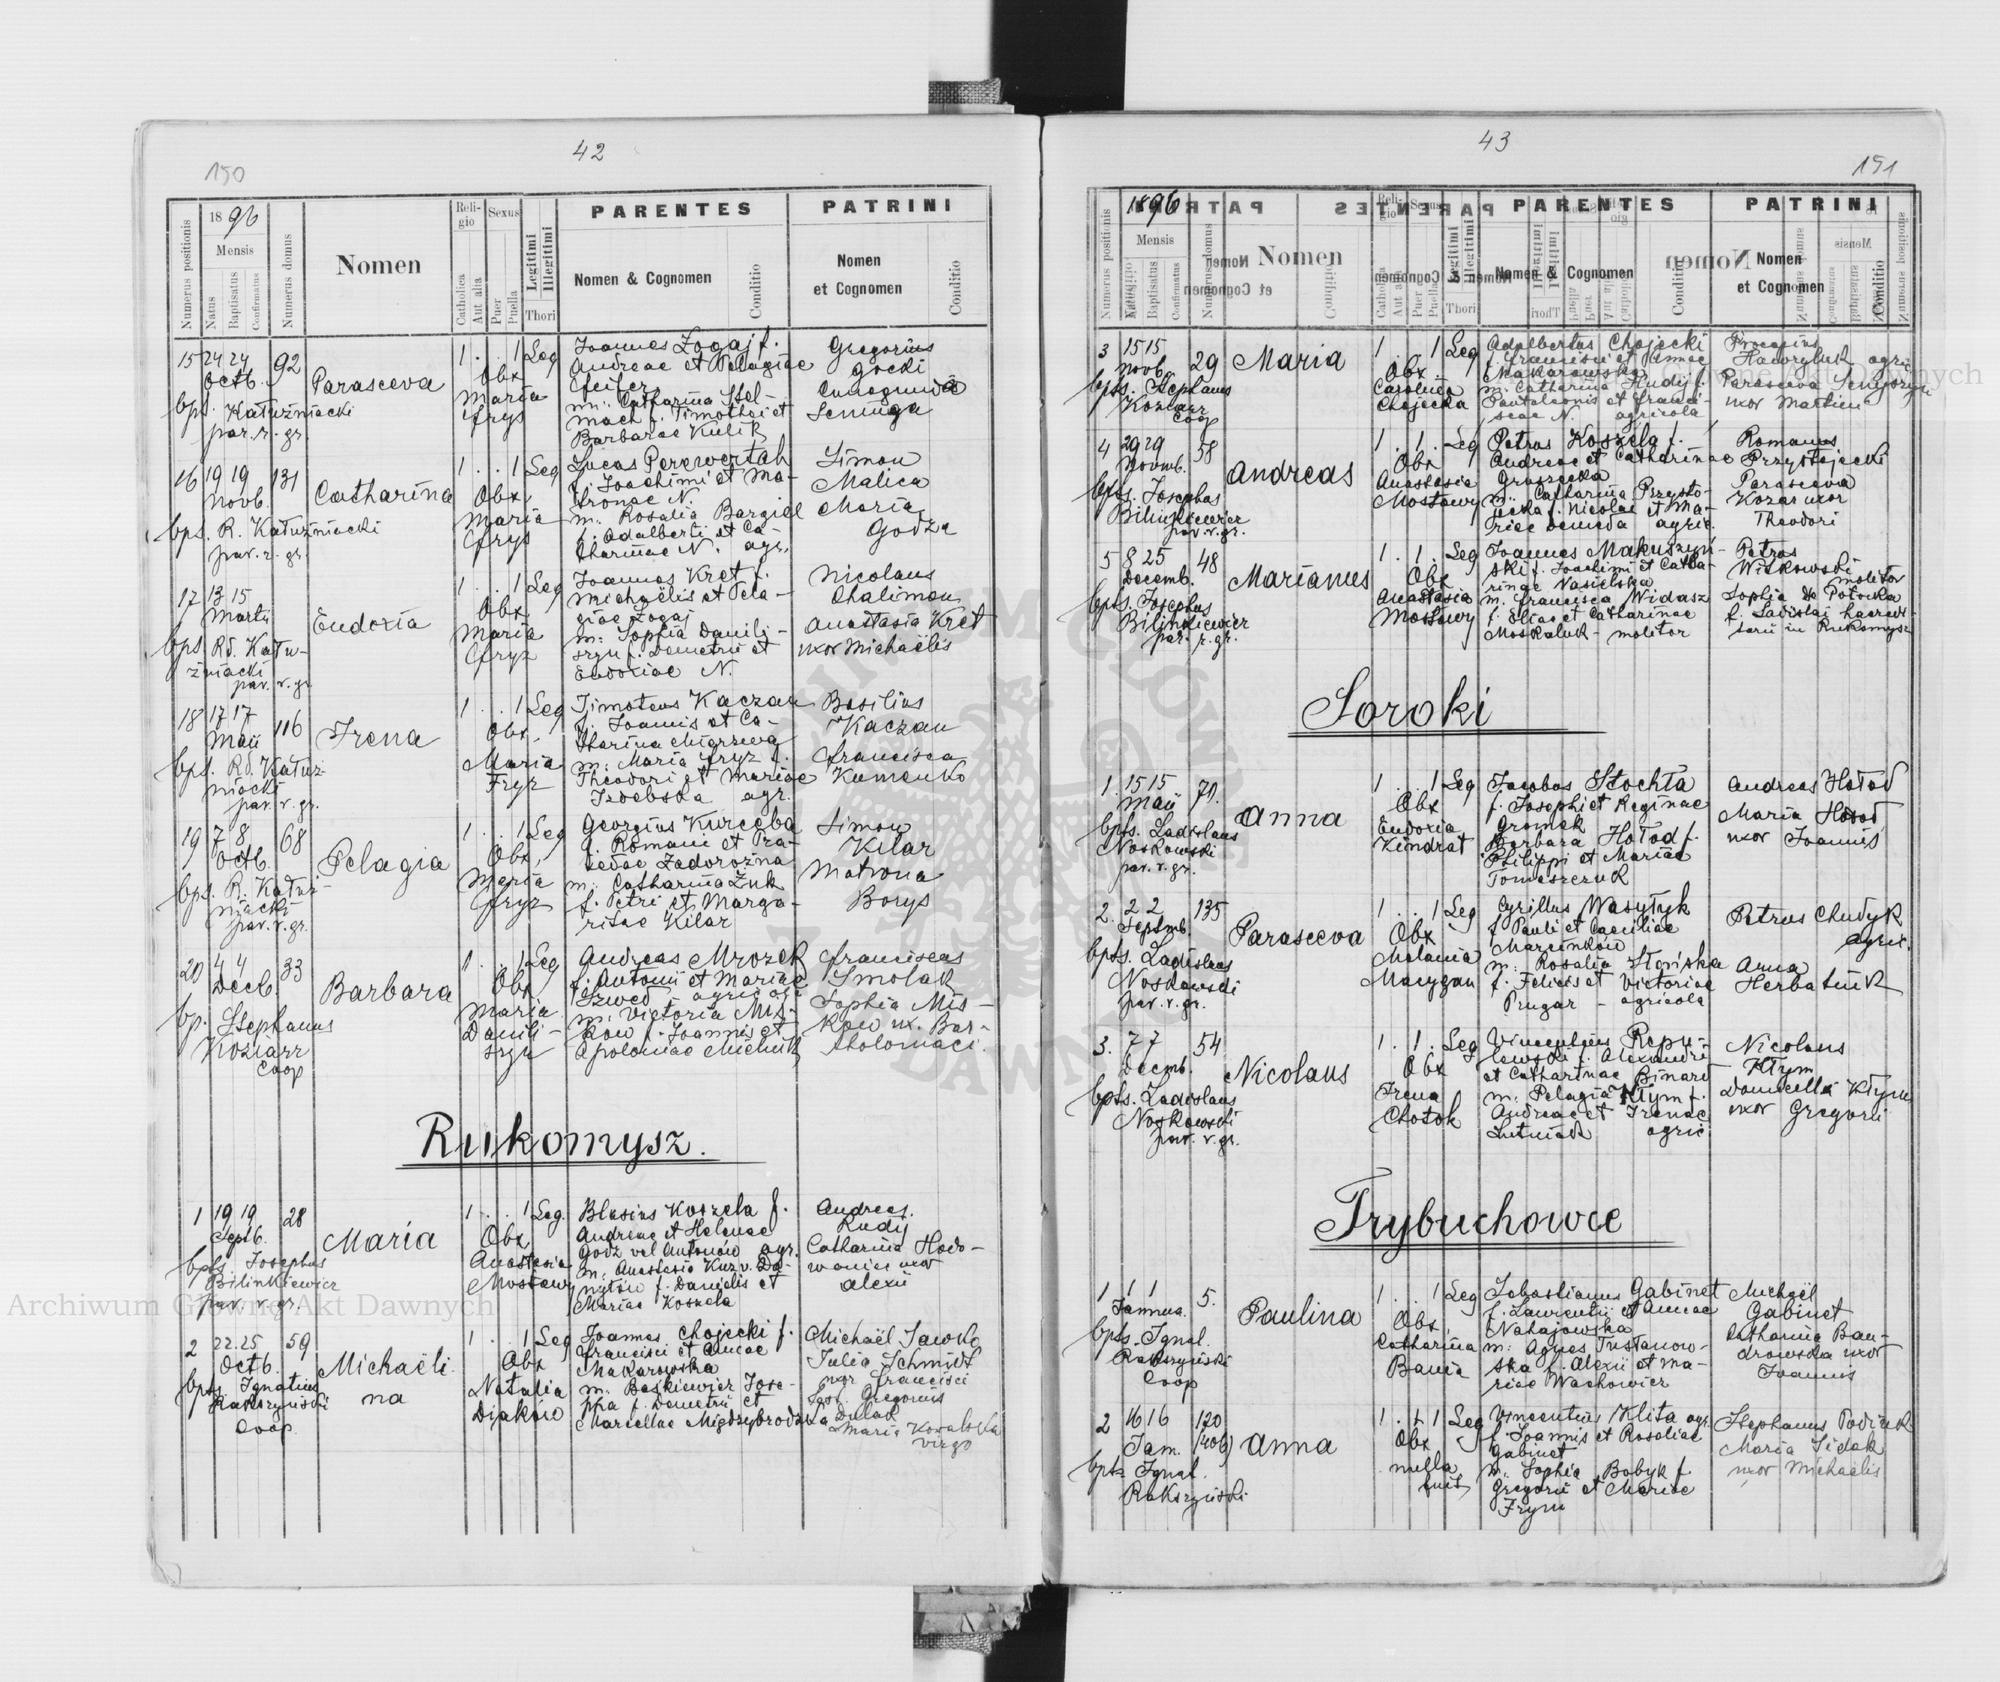 42
150
1896
Numerus positionis
Mensis
Natus
Baptisatus
Confirmatus
Numerus domus
Nomen
Religio
Catholica
Aut alia
Sexus
Puer
Puella
Legitimi
Illegitimi
Thori
PARENTES
Nomen & Cognomen
Conditio
PATRINI
Nomen
et Cognomen
Conditio
15 24 24 92 Parasceva 1 . . 1 Leg
Octb.
bpt. Kałużniacki
par. r. gr.
Obx
Maria
Fryz
Joannes Zogaj f.
Andreae et Pelagiae
m. Catharina Stel-
mach f. Timothei et
Barbarae Kulik
Gregorius
Gocki
16 19 19 131 Catharina 1 . . 1 Leg
Novb.
bpt. R. Kałużniacki
par. r. gr.
Obx
Maria
Fryz
Lucas Perewertah
f. Joachimi et Ma-
tronae N.
m. Rosalia Bargiel
f. Adalberti et Ca-
tharinae N. agr.
Simon
Malica
Maria
Godza
17 13 15
Martii
Eudoxia 1 . . 1 Leg
bpt. Rd. Kału-
żniacki
par. r. gr.
Obx
Maria
Fryz
Joannes Kret f.
Michaëlis et Pela-
giae Zogaj
m. Sophia Danili-
szyn f. Demetrii et
Eudoxiae N.
Nicolaus
Chalimon
Anastasia Kret
uxor Michaëlis
18 17 17 116 Irena 1 . . 1 Leg
Maii
bpt. Rd. Kałuż-
niacki
par. r. gr.
Obx.
Maria
Fryz
Timoteus Kaczan
f. Joannis et Ca-
m. Maria Fryz f.
Theodori et Mariae
Izdebska agr.
Basilius
Kaczan
Francisca
Kumenko
19 7 8 68 Pelagia 1 . . 1 Leg
Octb.
bpt. R. Kałuż-
niacki
par. r. gr.
Obx.
Maria
Fryz
Georgius Kurceba
f. Romani et Pra-
Zadorożna
m. Catharina Żuk
f. Petri et Marga-
ritae Kilar
Simon
Kilar
Matrona
Borys
20 4 4 33 Barbara 1 . . 1 Leg
Decb.
bp. Stephanus
Koziarz
Coop
Obx
Maria
Danili-
szyn
Andreas Mrozek
f. Antonii et Mariae
Szwed agricola
m. Victoria Mis-
kow f. Joannis et
Apoloniae Michnik
Franciscus
Smolak
Sophia Mis-
kow ux. Bar-
tholomaei.
Rukomysz.
1 19 19 28 Maria 1 . . 1 Leg.
Septb.
bpts. Josephus
Bilinkiewicz
par. r. gr.
Obx
Anastasia
Mostowy
Blasius Koszela f.
Andreae et Helenae
Godz vel Antonów agr.
Mariae Koszela
Andreas
Rudy
Catharina Hodo-
waniec uxor
Alexii
2 22.25 59 Michaëli-
na 1 . . 1 Leg
Octb.
bpts. Ignatius
Rakszyński
Coop
Obx
Natalia
Djaków
Joannes Chojecki f.
Francisci et Annae
Makarowska
m. Baśkiewicz Jose-
pha f. Demetrii et
Marcellae Międzybrodzka
Michaël Sawko
Julia Schmidt
uxor Francisci
Maria Kowalska
virgo
43
151
1896
Numerus positionis
Mensis
Baptisatus
Confirmatus
Numerus domus
Nomen
PARENTES
Nomen & Cognomen
Conditio
PATRINI
Nomen
et Cognomen
Conditio
3 15 15 29 Maria 1 . . 1 Leg
Novb.
bpts. Stephanus
Koziarz
Coop
Obx.
Carolina
Chojecka
Adalbertus Chojecki
f. Francisci et Annae
Makarowska
m. Catharina Hudyj f.
Pantaleonis et Franci-
scae N. agricola
Procopius
Hawryluk agric.
Parasceva
uxor Martini
4 29 29 58 Andreas 1 . 1 . Leg
Novmb.
bpts. Josephus
Bilinkiewicz
par. r. gr.
Obx
Anastasia
Mostowy
Petrus Koszela f.
Andreae et Catharinae
Gruszecka
m. Catharina Przysto-
jecka f. Nicolai et Ma-
riae Demeda agric.
Romanus
Przystojecki
Parasceva
Kozar uxor
Theodori
5 8 25 48 Marianus 1 . 1 . Leg
Decemb.
bpts. Josephus
Bilinkiewicz
par. r. gr.
Obx
Anastasia
Mostowy
Joannes Makuszyń-
ski f. Joachimi et Catha-
rinae Nasielska
m. Francisca Widasz
f. Eliae et Catharinae
Moskaluk - molitor
Petrus
Witkowski
molitor
Sophia de Potocka
f. Ladislai
in Rukomysz
Soroki
1. 15 15 70. Anna 1 . . 1 Leg
Maii
bpts. Ladislaus
Noskowski
par. r. gr.
Obx
Eudoxia
Kindrat
Jacobus Stochła
f. Josephi et Reginae
Gromek
Barbara Hołod f.
Philippi et Mariae
Tomaszczuk
Andreas Hołod
Maria Hołod
uxor Joannis
2. 2 2 135 Parasceva 1 . . 1 Leg
Septmb.
bpts. Ladislaus
Noskowski
par. r. gr.
Obx
Melania
Marygan
Cyrillus Wasyłyk
f. Pauli et Caeciliae
Marcinków
m. Rosalia Słońska
f. Felicis et Victoriae
Prugar - agricola
Petrus Chudyk
agric.
Anna
Herbatiuk
3. 7 7 54 Nicolaus 1 . 1 . Leg
Decmb.
bpts. Ladislaus
Noskowski
par. r. gr.
Obx
Irena
Chotok
Vincentius Repu-
lewski f. Alexandri
et Catharinae Binard
m. Pelagia Kłym f.
Andreae et Irenae
Lutniak agric
Nicolaus
Kłym
Domicella Kłym
uxor Gregorii
Trybuchowce
1 1 1 5. Paulina 1 . . 1 Leg
Januar.
bpts. Ignat.
Rakszyński
Coop
Obx.
Catharina
Bania
Sebastianus Gabinet
f. Laurentii et Annae
Nahajowska
m. Agnes Trusłanow-
ska f. Alexii et Ma-
riae Wachowicz
Michaël
Gabinet
Catharina Ban-
drowska uxor
Joannis
2 16 16 170 Anna 1 . . 1 Leg
Jan. (406)
bpts Ignat.
Rakszyński
Obx
nulla
fuit
Vincentius Klita agr.
f. Joannis et Rosaliae
Gabinet
m. Sophia Bobyk f.
Gregorii et Mariae
Frym
Stephanus
Maria Sidak
uxor Michaëlis
Archiwum Główne Akt Dawnych